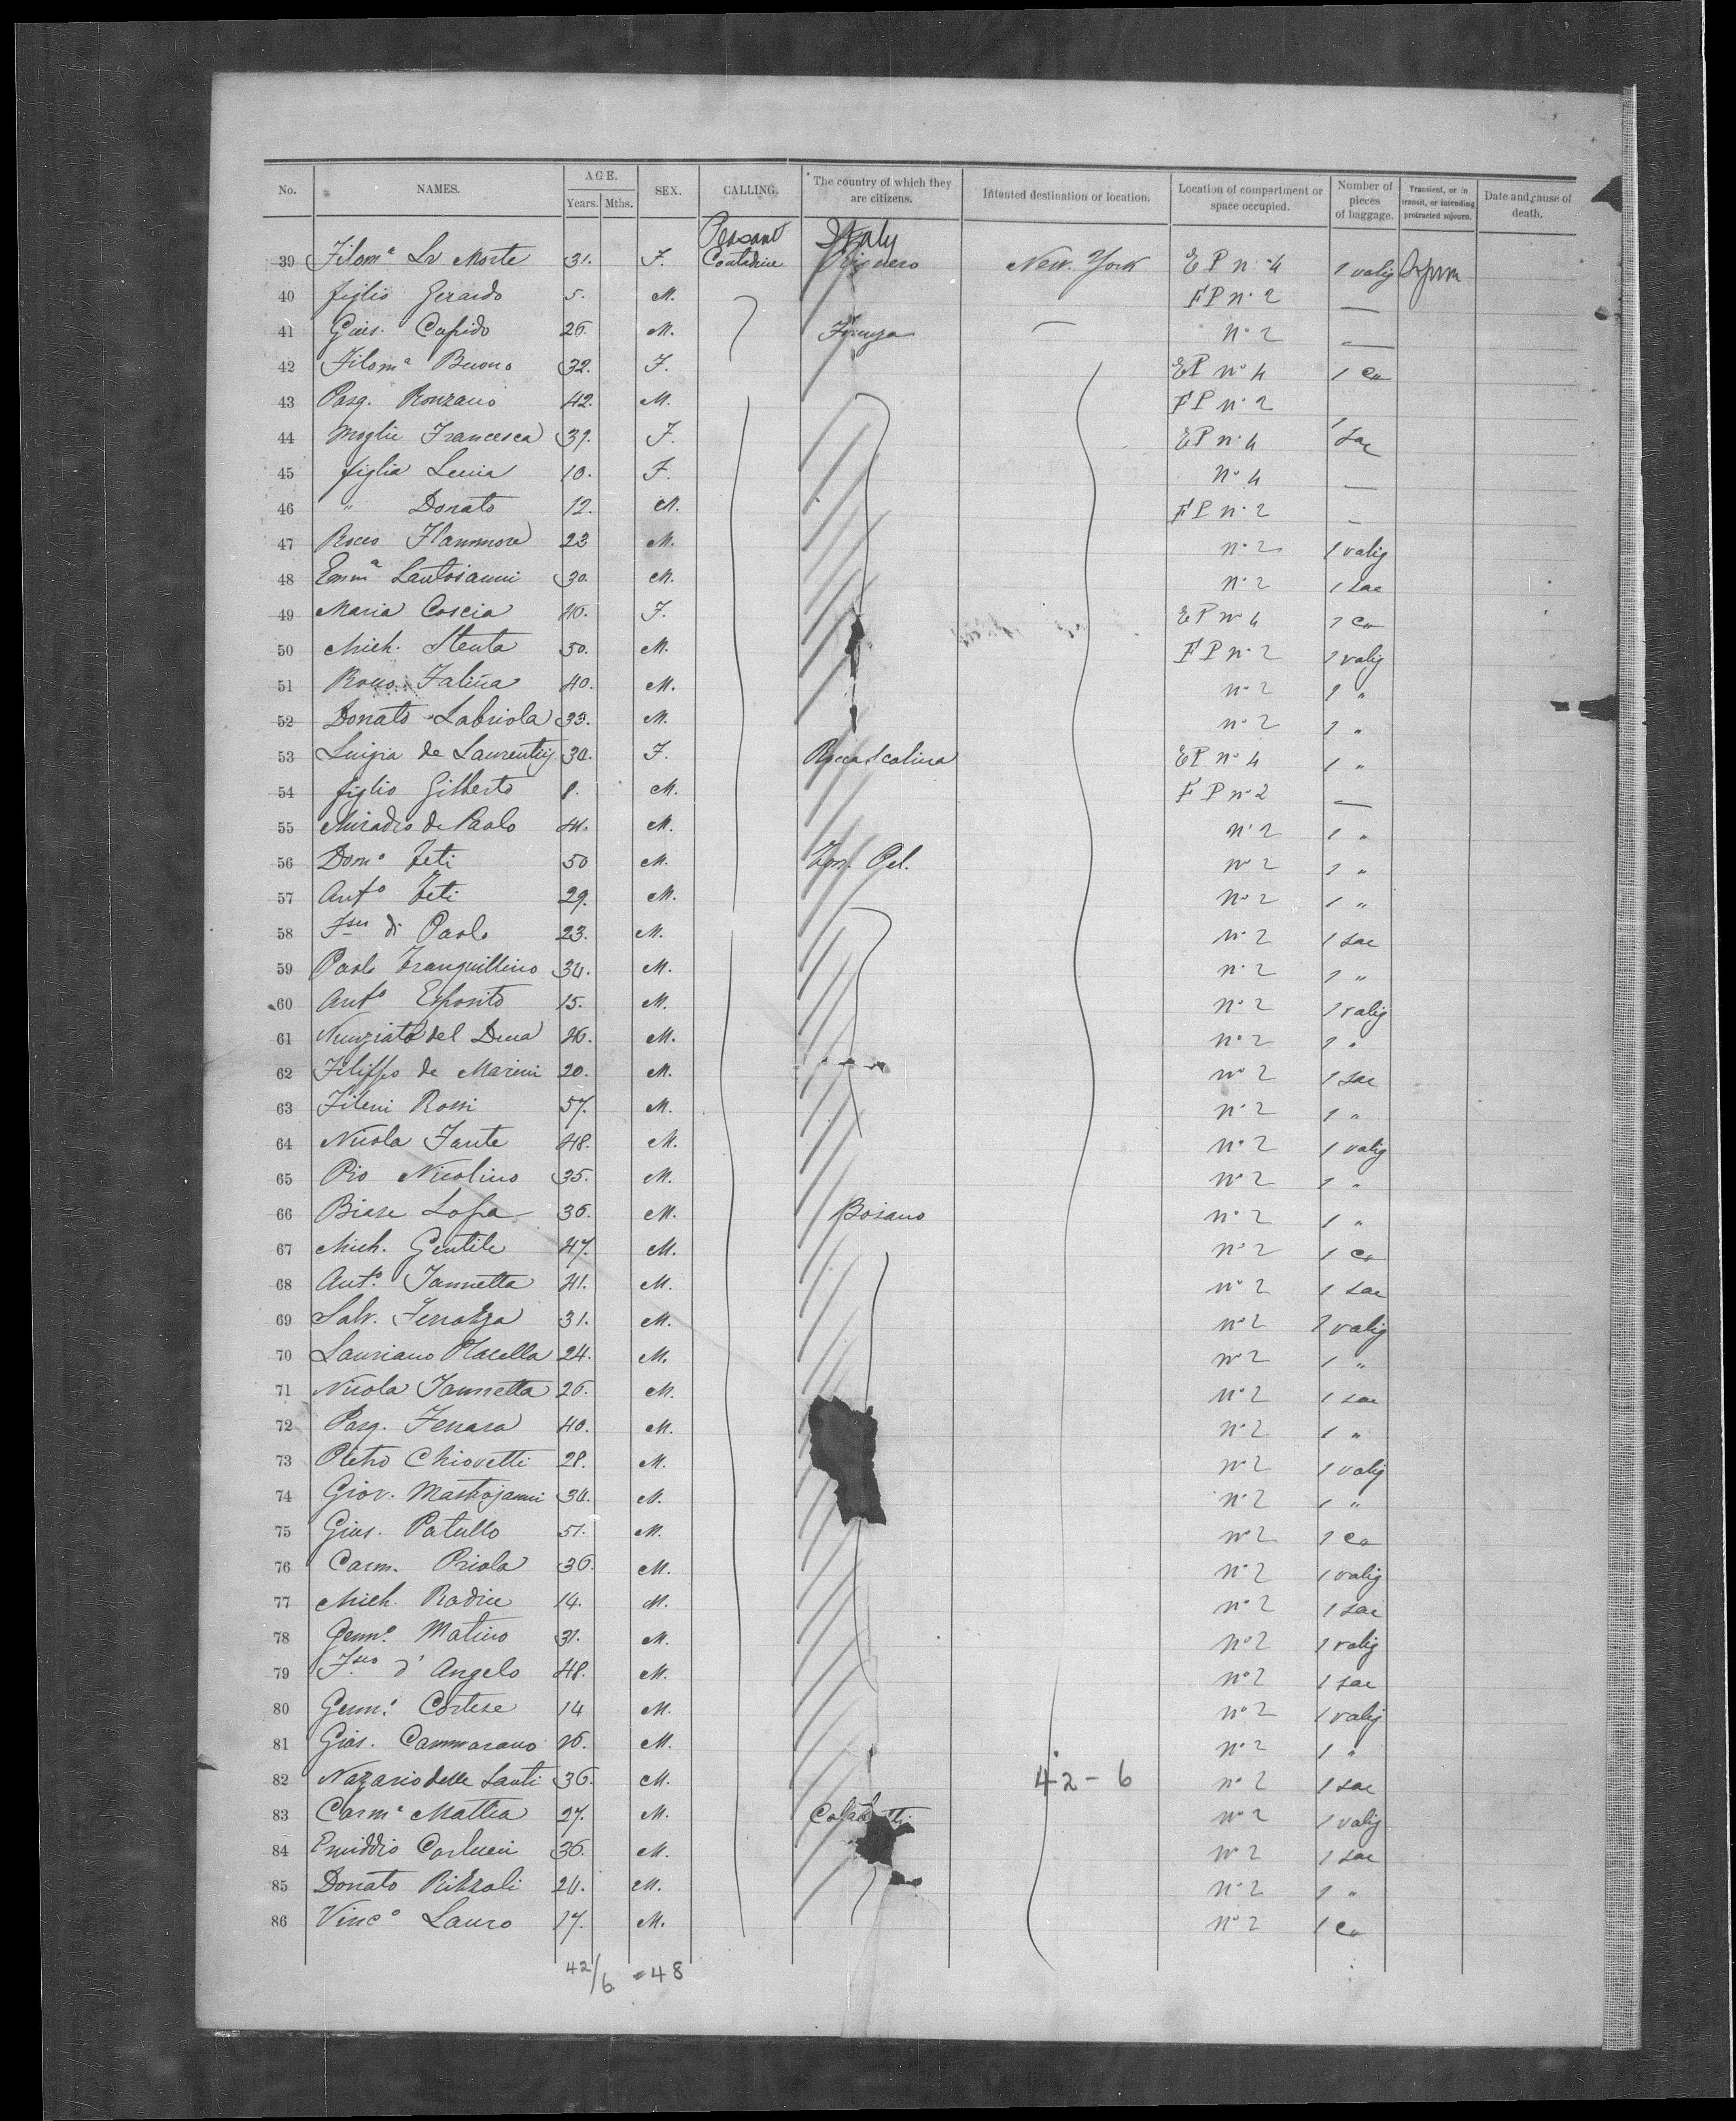 No. NAMES. AGE. Years. Mths. SEX. CALLING. The country of which they are citizens. Intented destination or location. Location of compartment or space occupied. Number of pieces of baggage. Transient, or in transit, or intending protracted sojourn. Date and cause of death.
Peasant Italy
39 Filom.a La Morte 31. F. Contadine New. York E P n.° 4 1 valig
40 figlio Gerardo 5. M. F P n.° 2 —
41 Gius. Cupido 26. M. n.° 2 —
42 Filom.a Buono 32. F. E P n° 4 1 ca
43 Pasq. Ronzano 42. M. F P n.° 2
44 Moglie Francesca 39. F. E P n.° 4 1 sac
45 figlia Lucia 10. F. n.° 4 —
46 " Donato 12. M. F P n.° 2 —
47 Rocco Flammore 23 M. n.° 2 1 valig
48 Emm.a Santoianni 30. M. n.° 2 1 sac
49 Maria Coscia 40. F. E P n° 4 1 ca
50 Mich. Stenta 50. M. F P n.° 2 1 valig
51 Rocco Falina 40. M. n.° 2 1 "
52 Donato Labriola 33. M. n.° 2 1 "
53 Luigia de Laurentiis 34. F. Roccascalina E P n° 4 1 "
54 figlio Gilberto 8. M. F P n° 2 —
55 de Paolo 44. M. n.° 2 1 "
56 Dom.o Teti 50 M. Tor. Pel. n° 2 1 "
57 Ant.o Teti 29. M. n.° 2 1 "
58 di Paolo 23. M. n.° 2 1 sac
59 Paolo Tranquillino 34. M. n.° 2 1 "
60 Ant.o Esposito 15. M. n.° 2 1 valig
61 Nunziato del Duca 46. M. n.° 2 1 "
62 Filippo de Marini 20. M. n° 2 1 sac
63 Fileni Rossi 57. M. n.° 2 1 "
64 Nicola Fante 48. M. n.° 2 1 valig
65 Pio Nicolino 35. M. n.° 2 1 "
66 Biase Lopa 36. M. Boiano n.° 2 1 "
67 Mich. Gentile 47. M. n.° 2 1 ca
68 Ant.o Iannetta 41. M. n° 2 1 sac
69 Salv. 31. M. n.° 2 1 valig
70 Lauriano Placella 24. M. n° 2 1 "
71 Nicola Iannetta 26. M. n.° 2 1 sac
72 Pasq. Ferrara 40. M. n.° 2 1 "
73 Pietro Chiovetti 28. M. n° 2 1 valig
74 Giov. Mastrojanni 34. M. n.° 2 1 "
75 Gius. Patullo 51. M. n° 2 1 ca
76 Carm. Priola 36. M. n.° 2 1 valig
77 Mich. Radice 14. M. n.° 2 1 sac
78 Genn.o Matino 31. M. n.° 2 1 valig
79 F.sco d'Angelo 48. M. n° 2 1 sac
80 Genn.o Cortese 14 M. n.° 2 1 valig
81 Gius. Cammarano 26. M. n.° 2 1 "
82 Nazario delle Santi 36. M. 42 - 6 n.° 2 1 sac
83 Carm.e Mattia 27. M. n.° 2 1 valig
84 Emiddio Carlucci 36. M. n° 2 1 sac
85 Donato Rizzoli 24. M. n.° 2 1 "
86 Vinc.o Lauro 17. M. n.° 2 1 ca
42/6 = 48